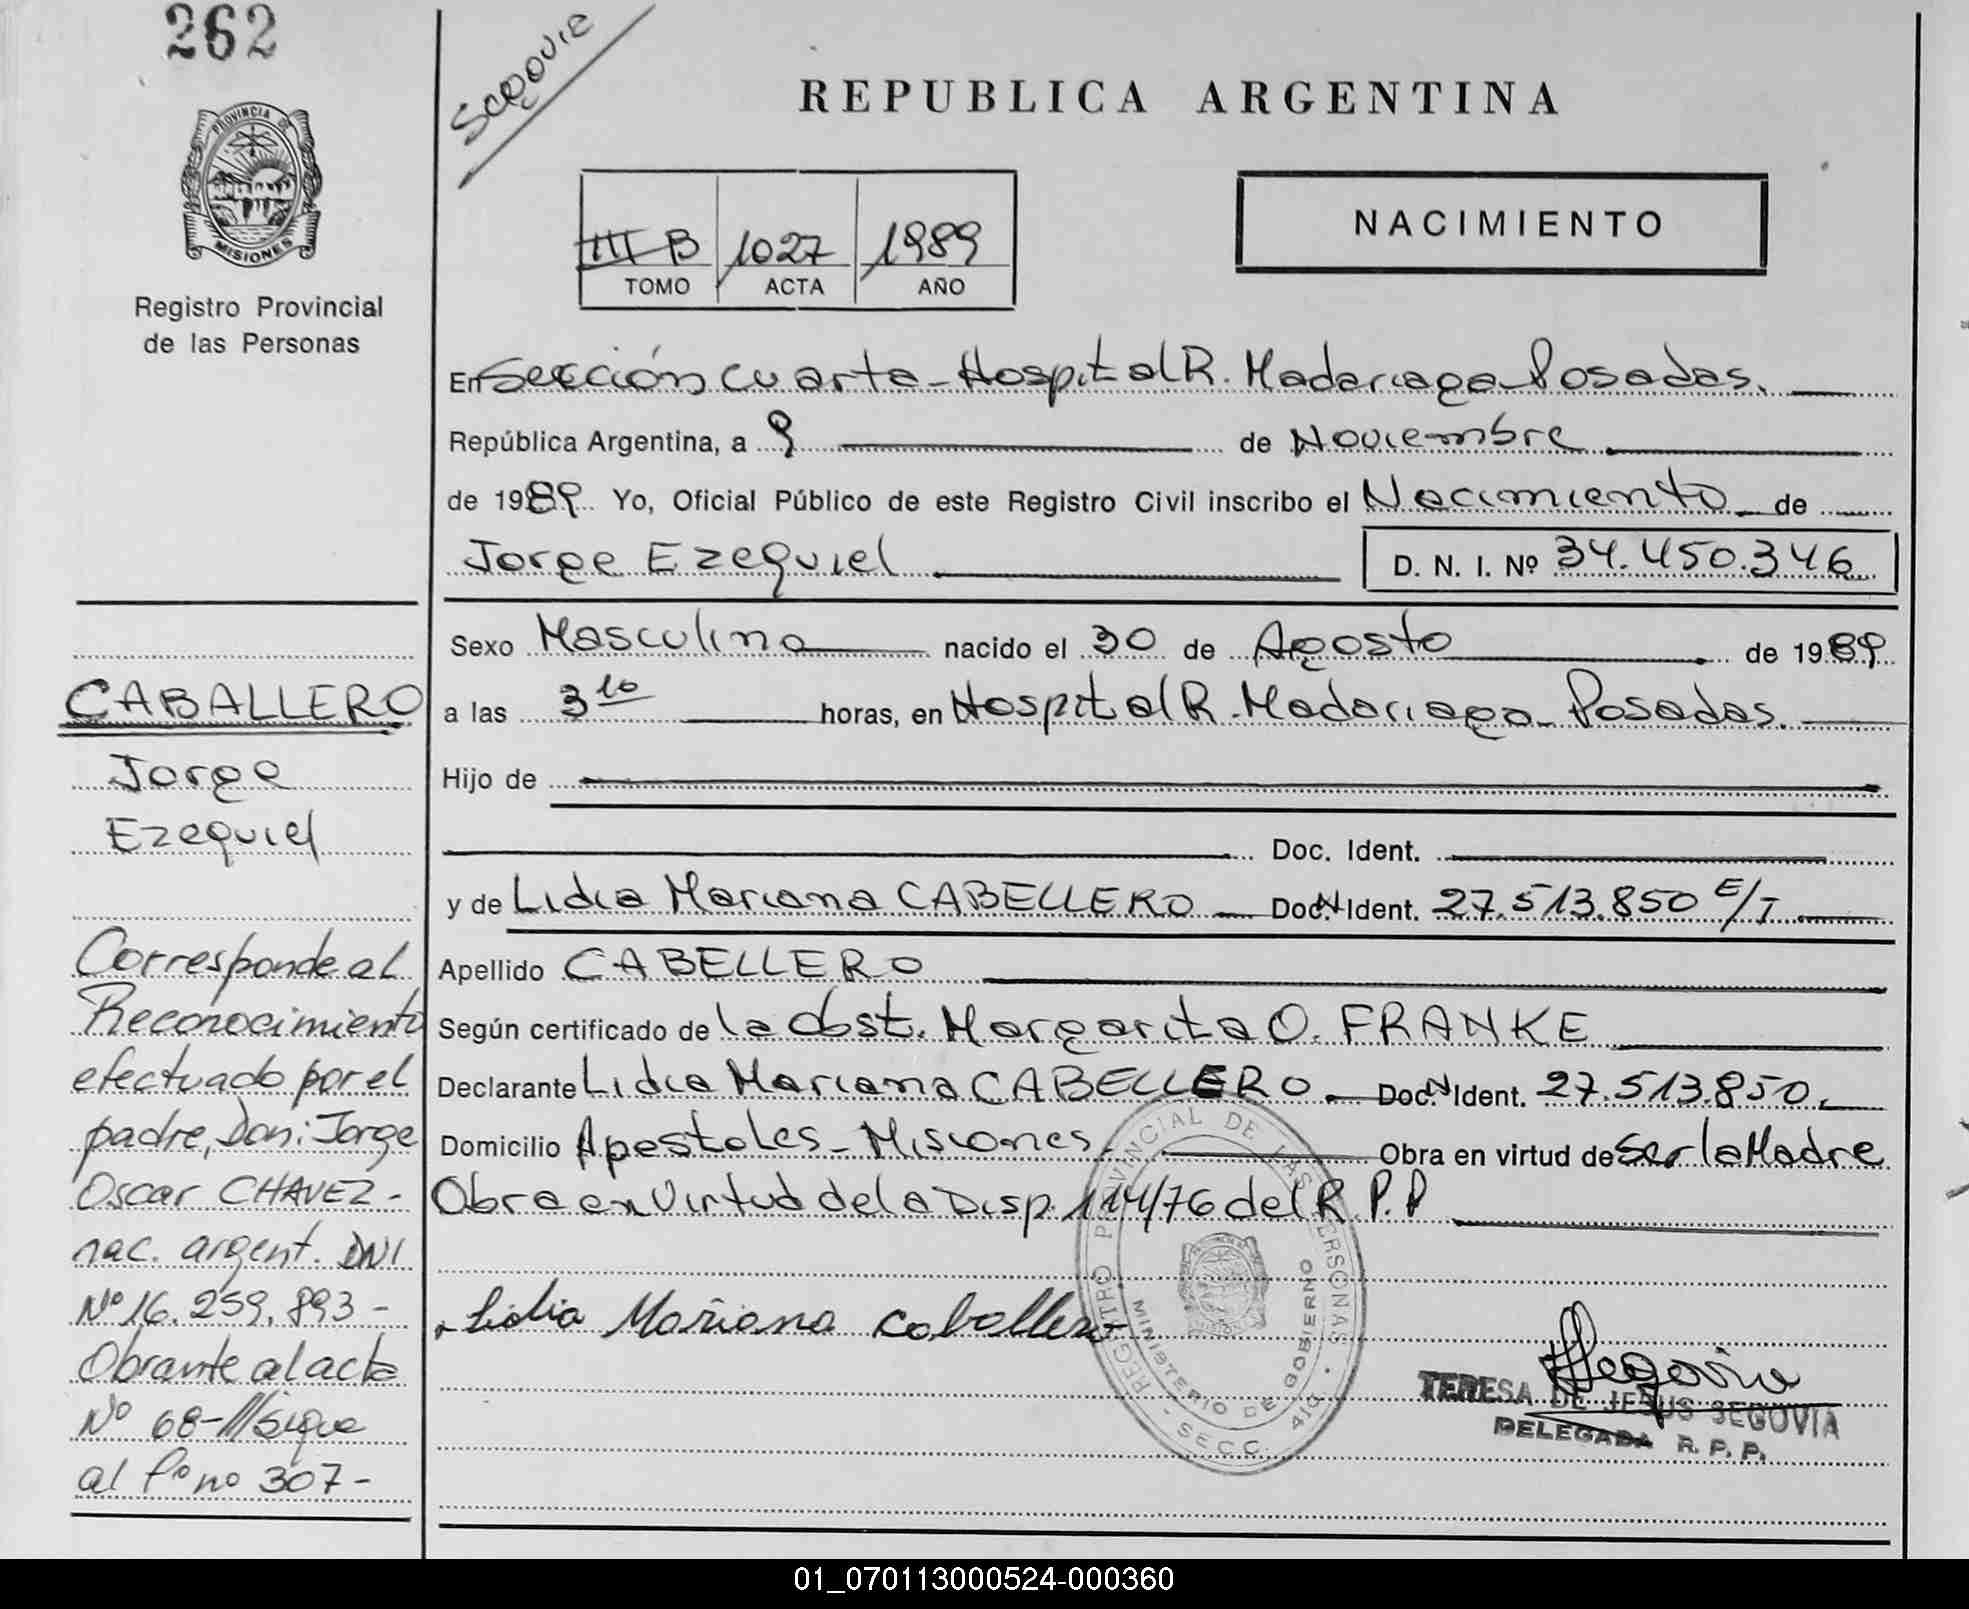 262
Segovia
REPUBLICA ARGENTINA
PROVINCIA DE
MISIONES
Registro Provincial
de las Personas
III B 1027 1989
TOMO ACTA AÑO
NACIMIENTO
En Sección cuarta - Hospital R. Madariaga - Posadas.
República Argentina, a 9 de Noviembre
de 1989 Yo, Oficial Público de este Registro Civil inscribo el Nacimiento de
Jorge Ezequiel D. N. I. Nº 34.450.346
Sexo Masculino nacido el 30 de Agosto de 1989
a las 3 10 horas, en Hospital R. Madariaga - Posadas.
Hijo de
Doc. Ident.
y de Lidia Mariana CABELLERO Doc. N Ident. 27.513.850 E/T
Apellido CABELLERO
Según certificado de la obst. Margarita O. FRANKE
Declarante Lidia Mariana CABELLERO Doc. N Ident. 27.513.850.
Domicilio Apostoles - Misiones Obra en virtud de ser la Madre
Obra en Virtud de la Disp. 114/76 del R.P.P
Lidia Mariana Caballero
REGISTRO PROVINCIAL DE LAS PERSONAS
MINISTERIO DE GOBIERNO
SECC. 4ta
Segovia
TERESA DE JESUS SEGOVIA
DELEGADA R. P. P.
CABALLERO
Jorge
Ezequiel
Corresponde al
Reconocimiento
efectuado por el
padre, Don: Jorge
Oscar CHAVEZ -
nac. argent. DNI
Nº 16.259.893 -
Obrante al acta
Nº 68-//sigue
al fº nº 307 -
01_070113000524-000360